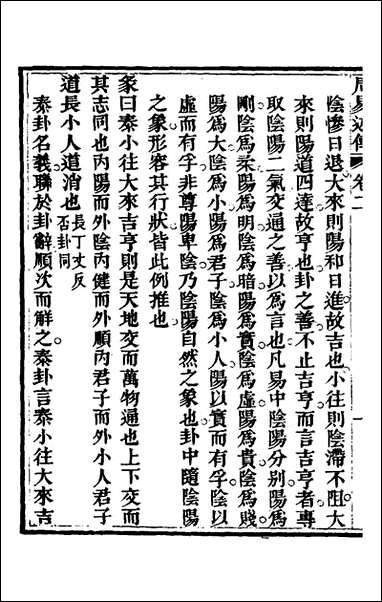 周易述傳 卷二
陰慘日退大來則陽和日進故吉也小往則陰滯不阻大
來則陽道四達故亨也卦之善不止吉亨而言吉亨者專
取陰陽二氣交通之善以為言也凡易中陰陽分別陽為
剛陰為柔陽為明陰為暗陽為實陰為虛陽為貴陰為賤
陽為大陰為小陽為君子陰為小人陽以實而有孚陰以
虛而有孚非尊陽卑陰乃陰陽自然之象也卦中隨陰陽
之象形容其行狀皆此例推也
彖曰泰小往大來吉亨則是天地交而萬物通也上下交而
其志同也內陽而外陰內健而外順內君子而外小人君子
道長小人道消也長丁丈反否卦同
泰卦名義聯於卦辭順次而解之泰卦言泰小往大來吉